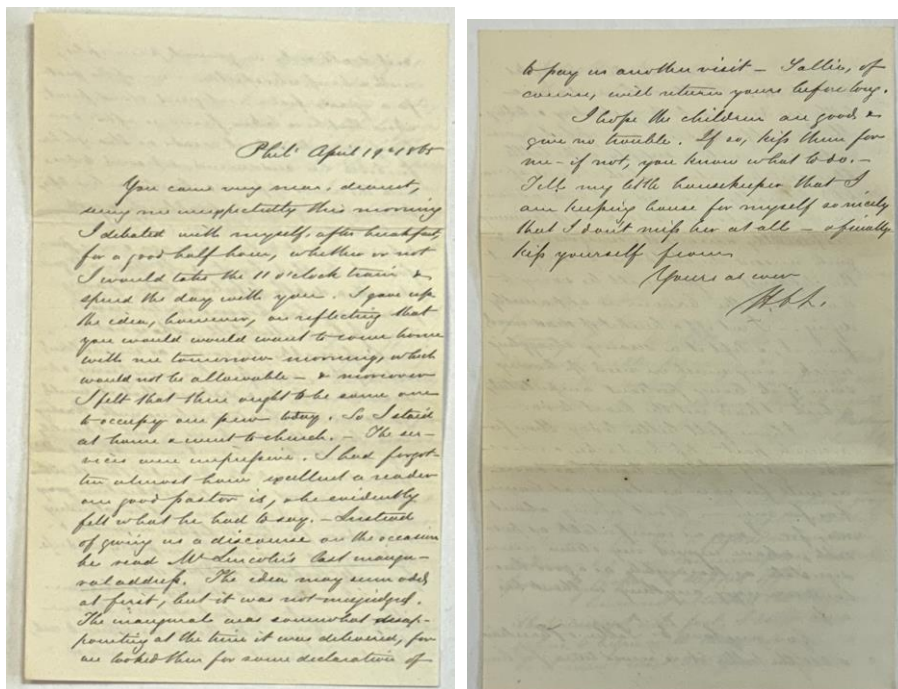 Phila April 19th 1865
You came very near, dearest,
seeing me unexpectedly this morning
I debated with myself, after breakfast,
for a good half hour, whether or not
I would take the 11 o'clock train &
spend the day with you. I gave up
the idea, however, on reflecting that
you would would want to come home
with me tomorrow morning, which
would not be allowable — & moreover
I felt that there ought to be some one
to occupy our pew today. So I staid
at home & went to church. — The ser-
vices were impressive. I had forgot-
ten almost how excellent a reader
our good pastor is, & he evidently
felt what he had to say. — Instead
of giving us a discourse on the occasion
he read Mr Lincoln's last inaugu-
ral address. The idea may seem odd
at first, but it was not misjudged.
The inaugural was somewhat disap-
pointing at the time it was delivered, for
we looked then for some declaration of
to pay us another visit — Sallie, of
course, will return yours before long.
I hope the children are good &
give no trouble. If so, kiss them for
me — if not, you know what to do. —
Tell my little housekeeper that I
am keeping house for myself so nicely
that I don't miss her at all — & finally
kiss yourself from
Yours as ever